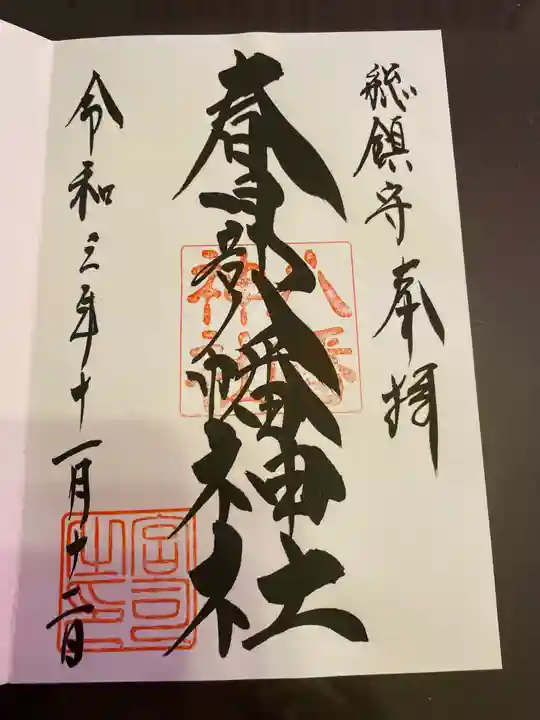 総鎮守 奉拝
春日部八幡神社
八幡神社
令和三年十一月十二日
宮司之印